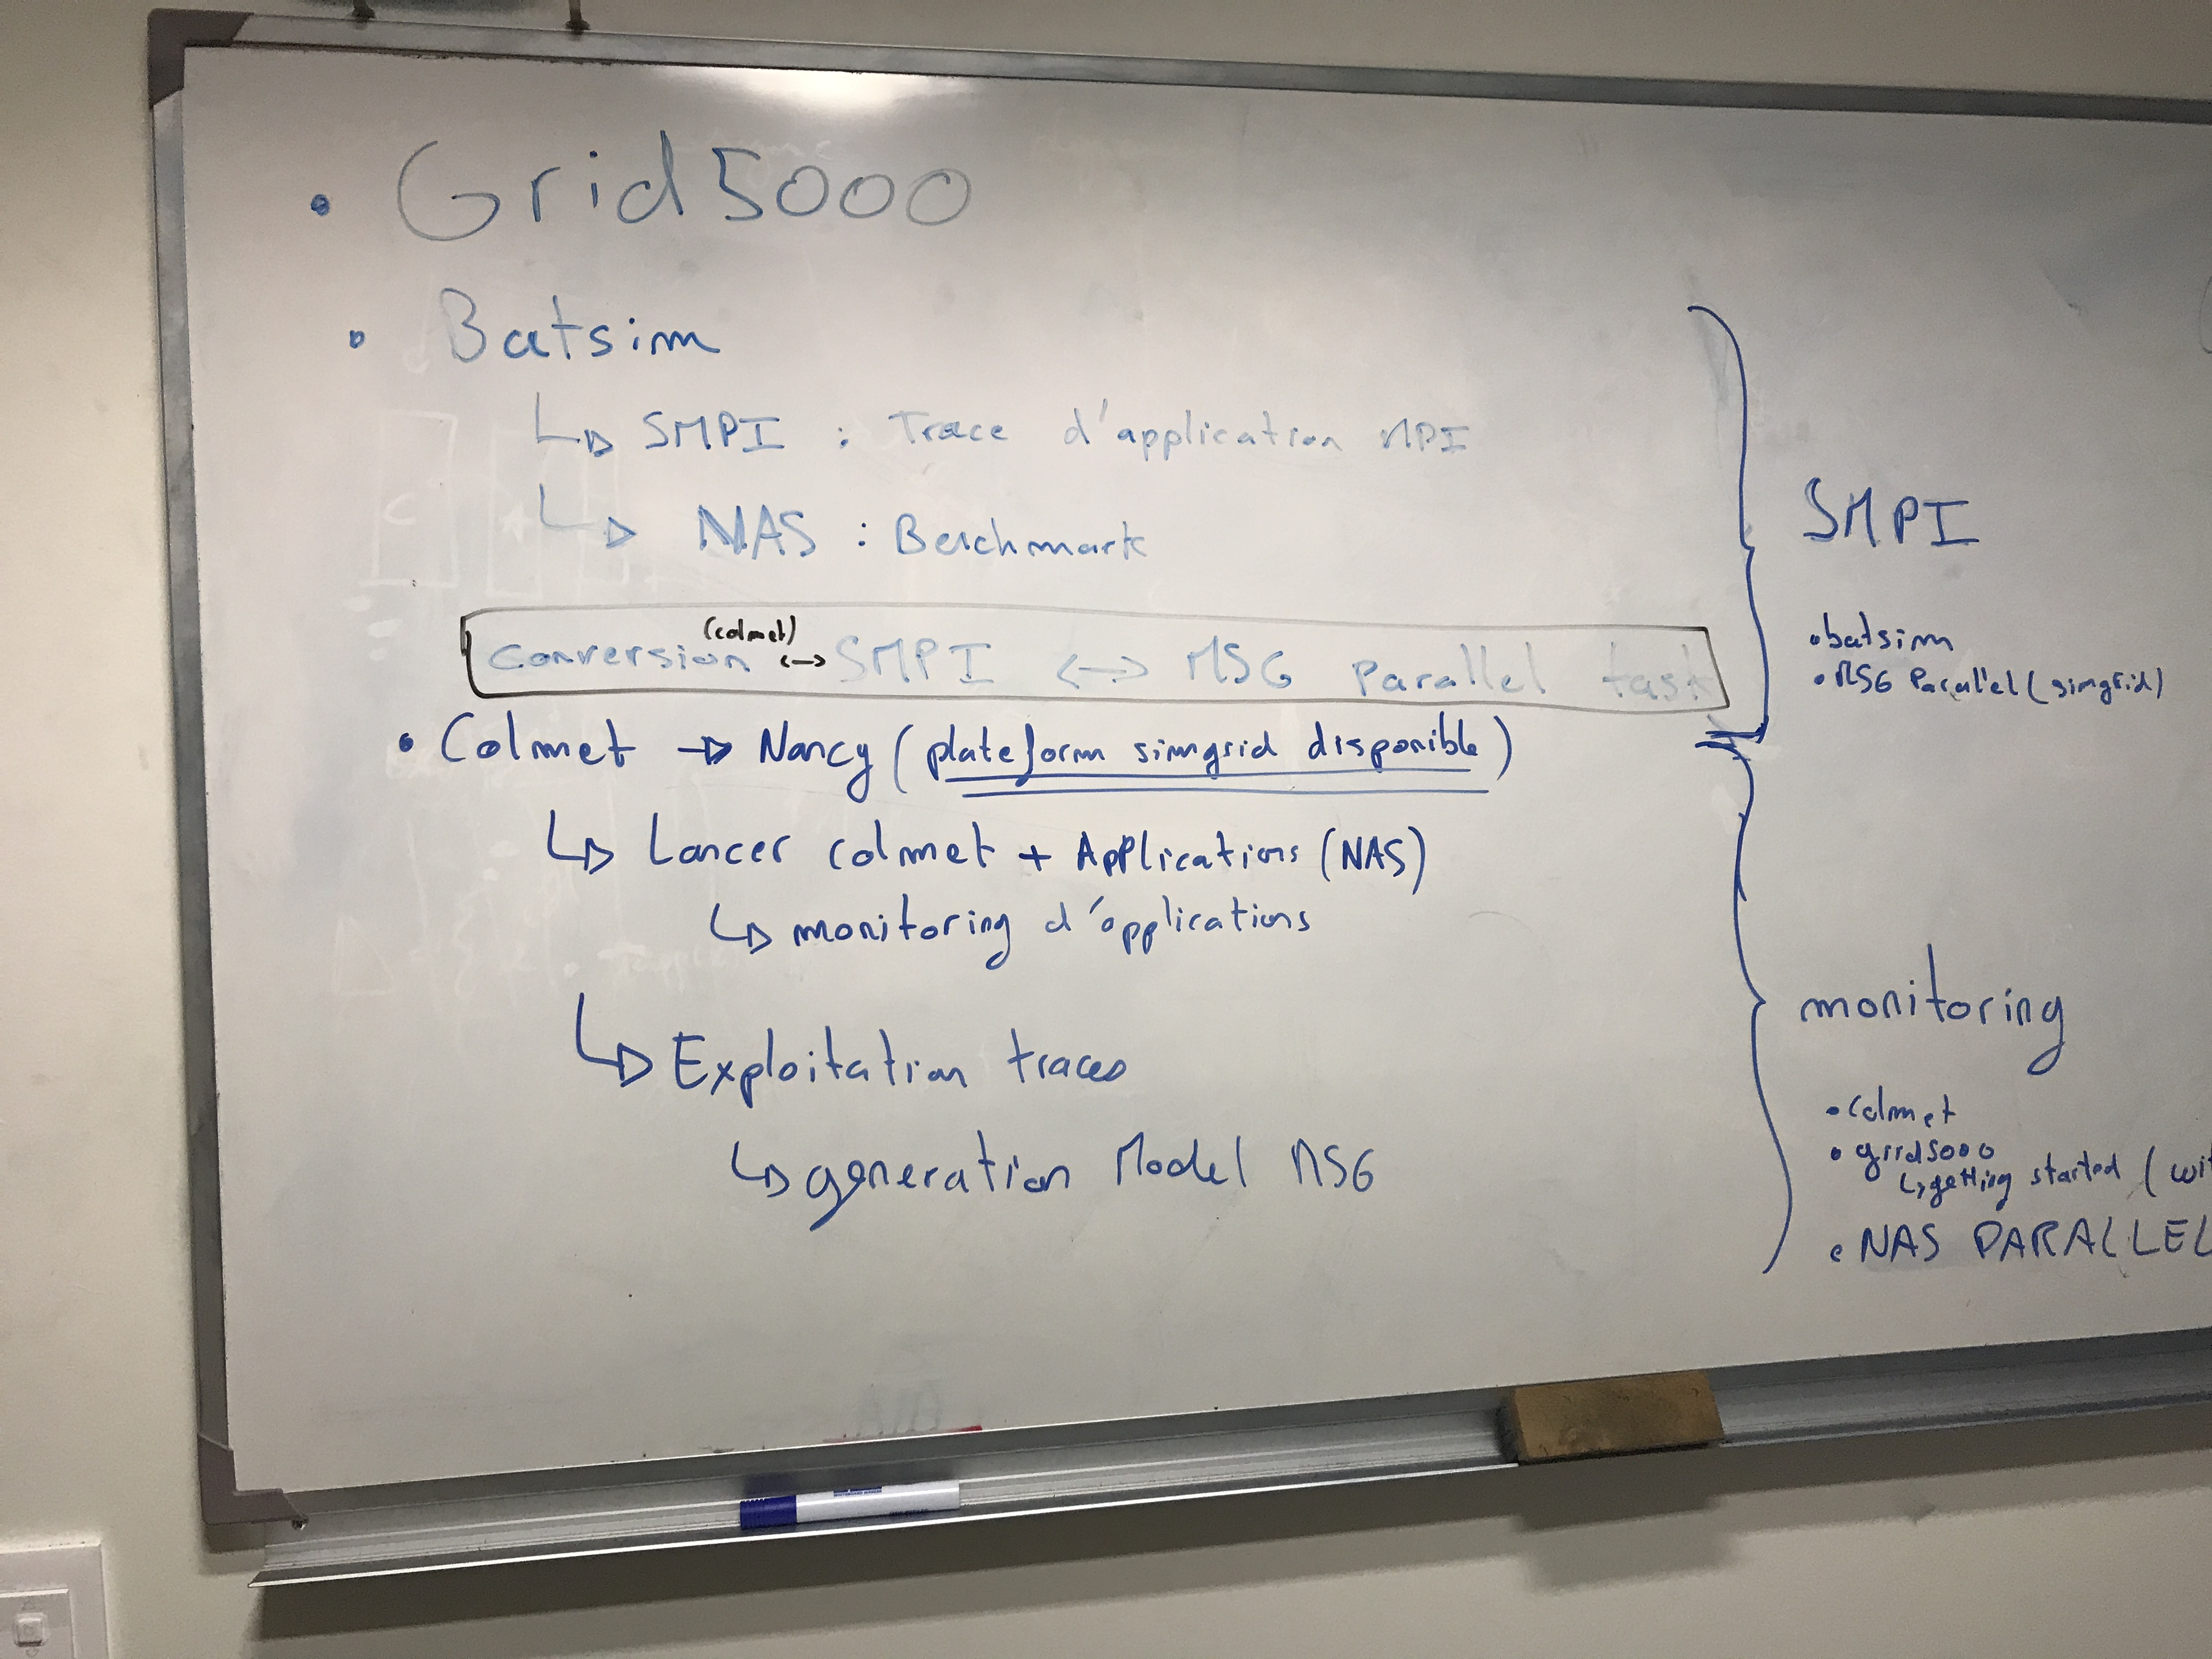 • Grid5000
• Batsim
↳ SMPI : Trace d'application MPI
↳ NAS : Benchmark
conversion (colmet) <-> SMPI <-> MSG Parallel task
• Colmet → Nancy (plateform simgrid disponible)
↳ Lancer colmet + Applications (NAS)
↳ monitoring d'applications
↳ Exploitation traces
↳ generation Model MSG
SMPI
• batsim
• MSG Parallel (simgrid)
monitoring
• colmet
• grid5000
↳ getting started (
• NAS PARALLEL